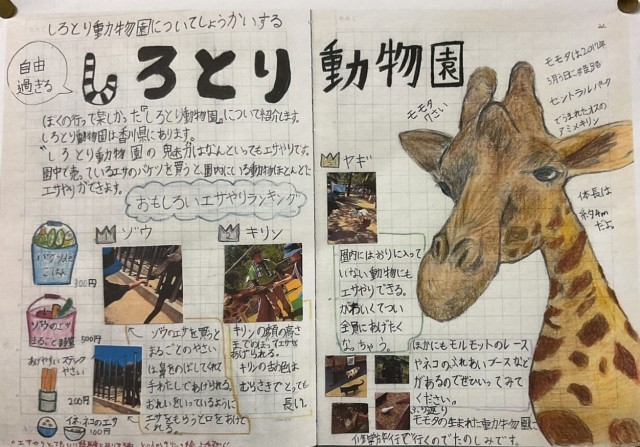 しろとり動物園についてしょうかいする
自由
過ぎる
しろとり動物園
ぼくの行って楽しかった『しろとり動物園』について紹介します。
しろとり動物園は香川県にあります。
しろとり動物園の魅力はなんといってもエサやりです。
園中で売っているエサのバケツを買うと園内にいる動物ほとんどに
エサやりができます。
おもしろいエサやりランキング
バケツ
ごはん
300円
ゾウのエサ
まるごと野菜
500円
おやさいスティック
やさい
200円
イヌ、ネコのエサ
100円
ゾウ
ゾウのエサを買うと
まるごとのやさい
は鼻をのばしてくれて
手わたしであげられる。
おれいをいっているように
エサをもらうと口をあけて
くれる。
キリン
キリンの顔の高さ
までのぼってエサを
あげられる。
キリンのお色は
むらさきでとっても
長い。
ヤギ
園内にはおりに入って
いない動物にも
エサやりできる。
かわいくてつい
全員にあげたく
なっちゃう。
モモタ
7さい
モモタは2017年
3月3日に
セントラルパーク
でうまれたオスの
アミメキリン
体長は
約4m
だよ
ほかにもモルモットのレース
やネコのふれあいブースなど
があるのでぜひいってみて
ください。
モモタの生まれた動物園に
修学旅行で行くのでたのしみです。